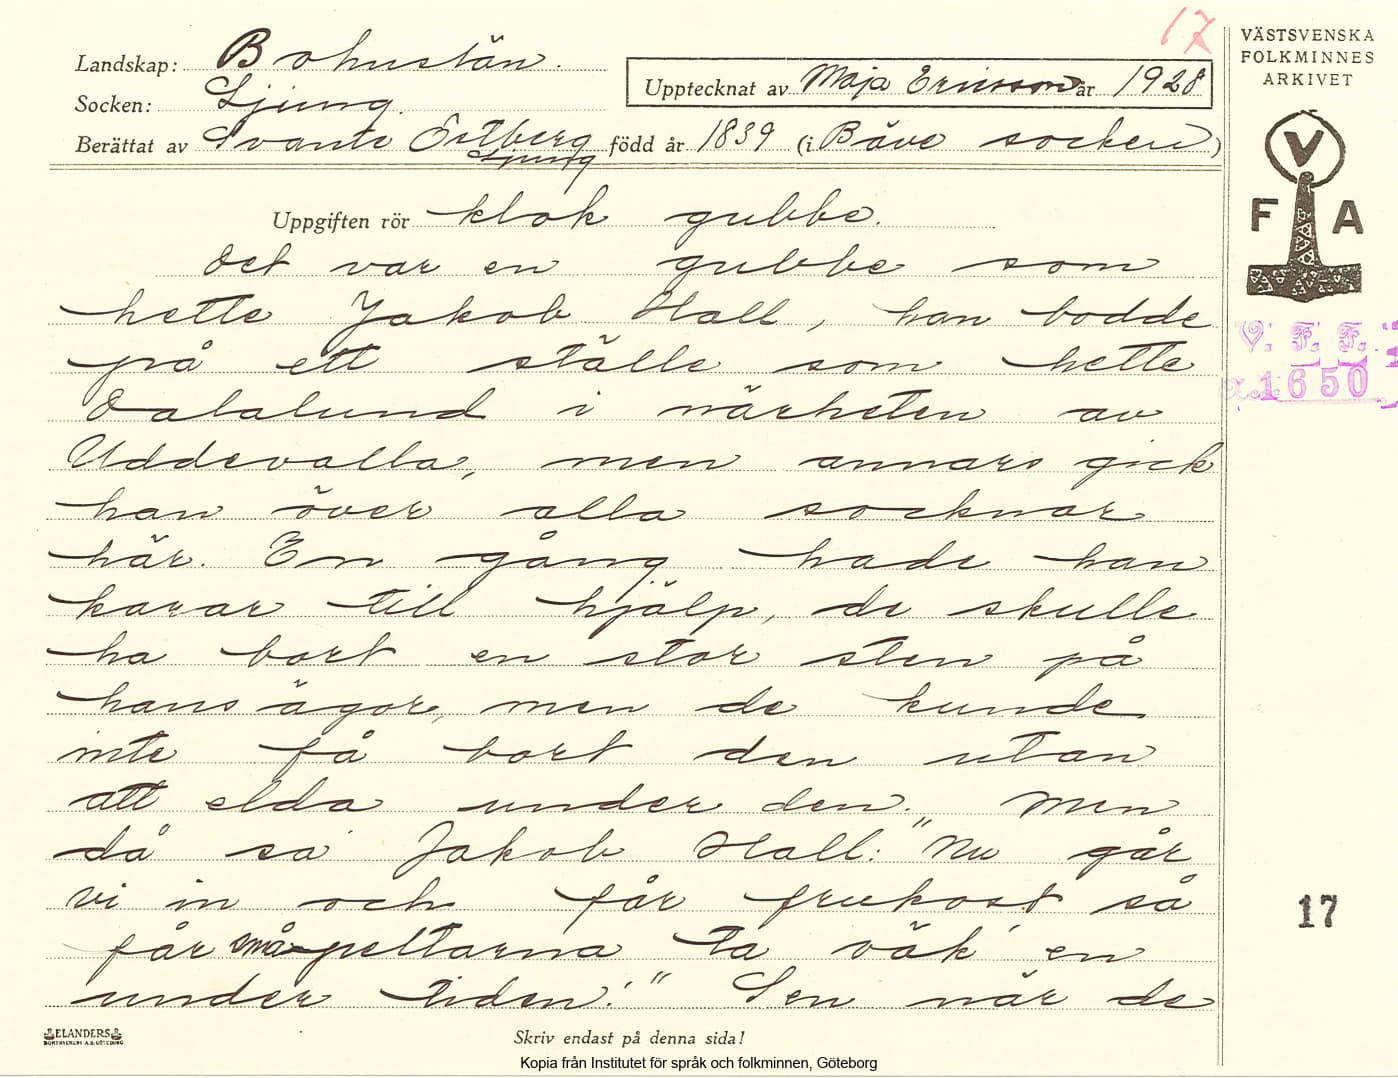 17
Landskap: Bohuslän.
Socken: Ljung.
Upptecknat av Maja Ericsson år 1928
Berättat av Svante Östberg född år 1839 (i Bäve socken)
Ljung
VÄSTSVENSKA
FOLKMINNES
ARKIVET
V
F A
V. F. F.
1650
Uppgiften rör klok gubbe.
Det var en gubbe som
hette Jakob Hall, han bodde
på ett ställe som hette
Dalalund i närheten av
Uddevalla, men annars gick
han över alla socknar
här. En gång hade han
karar till hjälp, de skulle
ha bort en stor sten på
hans ägor, men de kunde
inte få bort den utan
att elda under den. Men
då sa Jakob Hall: "Nu går
vi in och får frukost så
får småpeltarna ta väk en
under tiden!" Sen när de
17
ELANDERS
BOKTRYCKERI A.B. GÖTEBORG
Skriv endast på denna sida!
Kopia från Institutet för språk och folkminnen, Göteborg